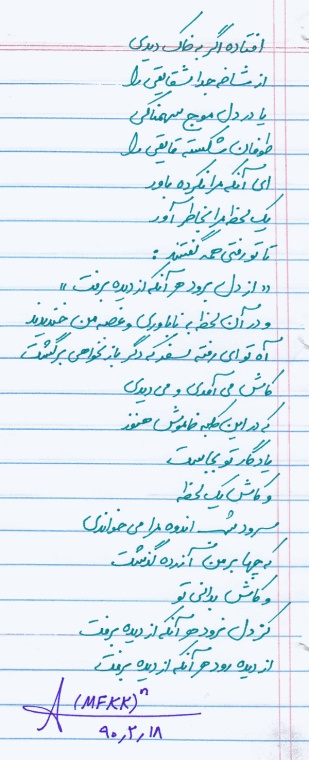 افتاده اگر به خاک دیدی
از شاخه جدا شقایقی را
یا در دل موج سهمناکی
طوفان شکسته قایقی را
ای آنکه مرا نکرده باور
یک لحظه مرا بخاطر آور
تا تو رفتی همه گفتند :
« از دل برود هر آنکه از دیده برفت »
و در آن لحظه به ناباوری و غصه من خندیدند
آه تو ای رفته سفر که دگر باز نخواهی برگشت
کاش می آمدی و می دیدی
که در این کلبه خاموش هنوز
یادگار تو بجاست
و کاش یک لحظه
سرود شب اندوه مرا می خواندی
که چها بر من آزرده گذشت
و کاش بدانی تو
کز دل نرود هر آنکه از دیده برفت
از دیده رود هر آنکه از دیده برفت
(MFKK)ⁿ
۹۰٫۲٫۱۸